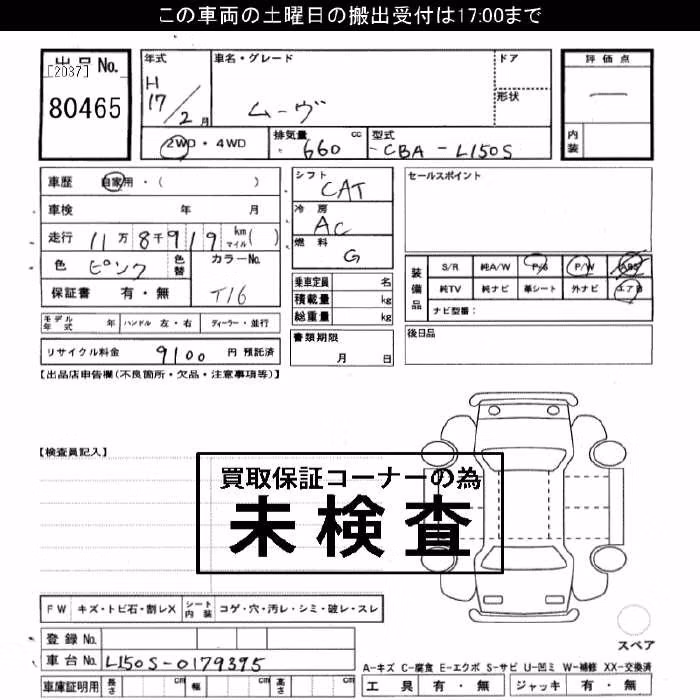 この車両の土曜日の搬出受付は17:00まで
出品No.
[2037]
80465
年式
H
17/2月
車名・グレード
ムーヴ
ドア
形状
評価点
―
内装
2WD・4WD
排気量 cc
660
型式
CBA-L150S
車歴 自家用・( )
車検 年 月
走行 11万8千919 km マイル( )
色 ピンク 色替
カラーNo.
T16
保証書 有・無
シフト
CAT
冷房
AC
燃料
G
乗車定員 名
積載量 kg
総重量 kg
セールスポイント
装備品
S/R 純A/W P/S P/W ABS
純TV 純ナビ 革シート 外ナビ エアB
ナビ型番:
モデル年式 年 ハンドル 左・右 ディーラー・並行
リサイクル料金 9100 円 預託済
書類期限
月 日
後日品
【出品店申告欄(不良箇所・欠品・注意事項等)】
【検査員記入】
買取保証コーナーの為
未検査
FW キズ・トビ石・割レX シート内装 コゲ・穴・汚レ・シミ・破レ・スレ
登録No.
車台No. L150S-0179395
車庫証明用 長さ cm 幅 cm 高さ cm
スペア
A-キズ C-腐食 E-エクボ S-サビ U-凹ミ W-補修 XX-交換済
工具 有・無 ジャッキ 有・無